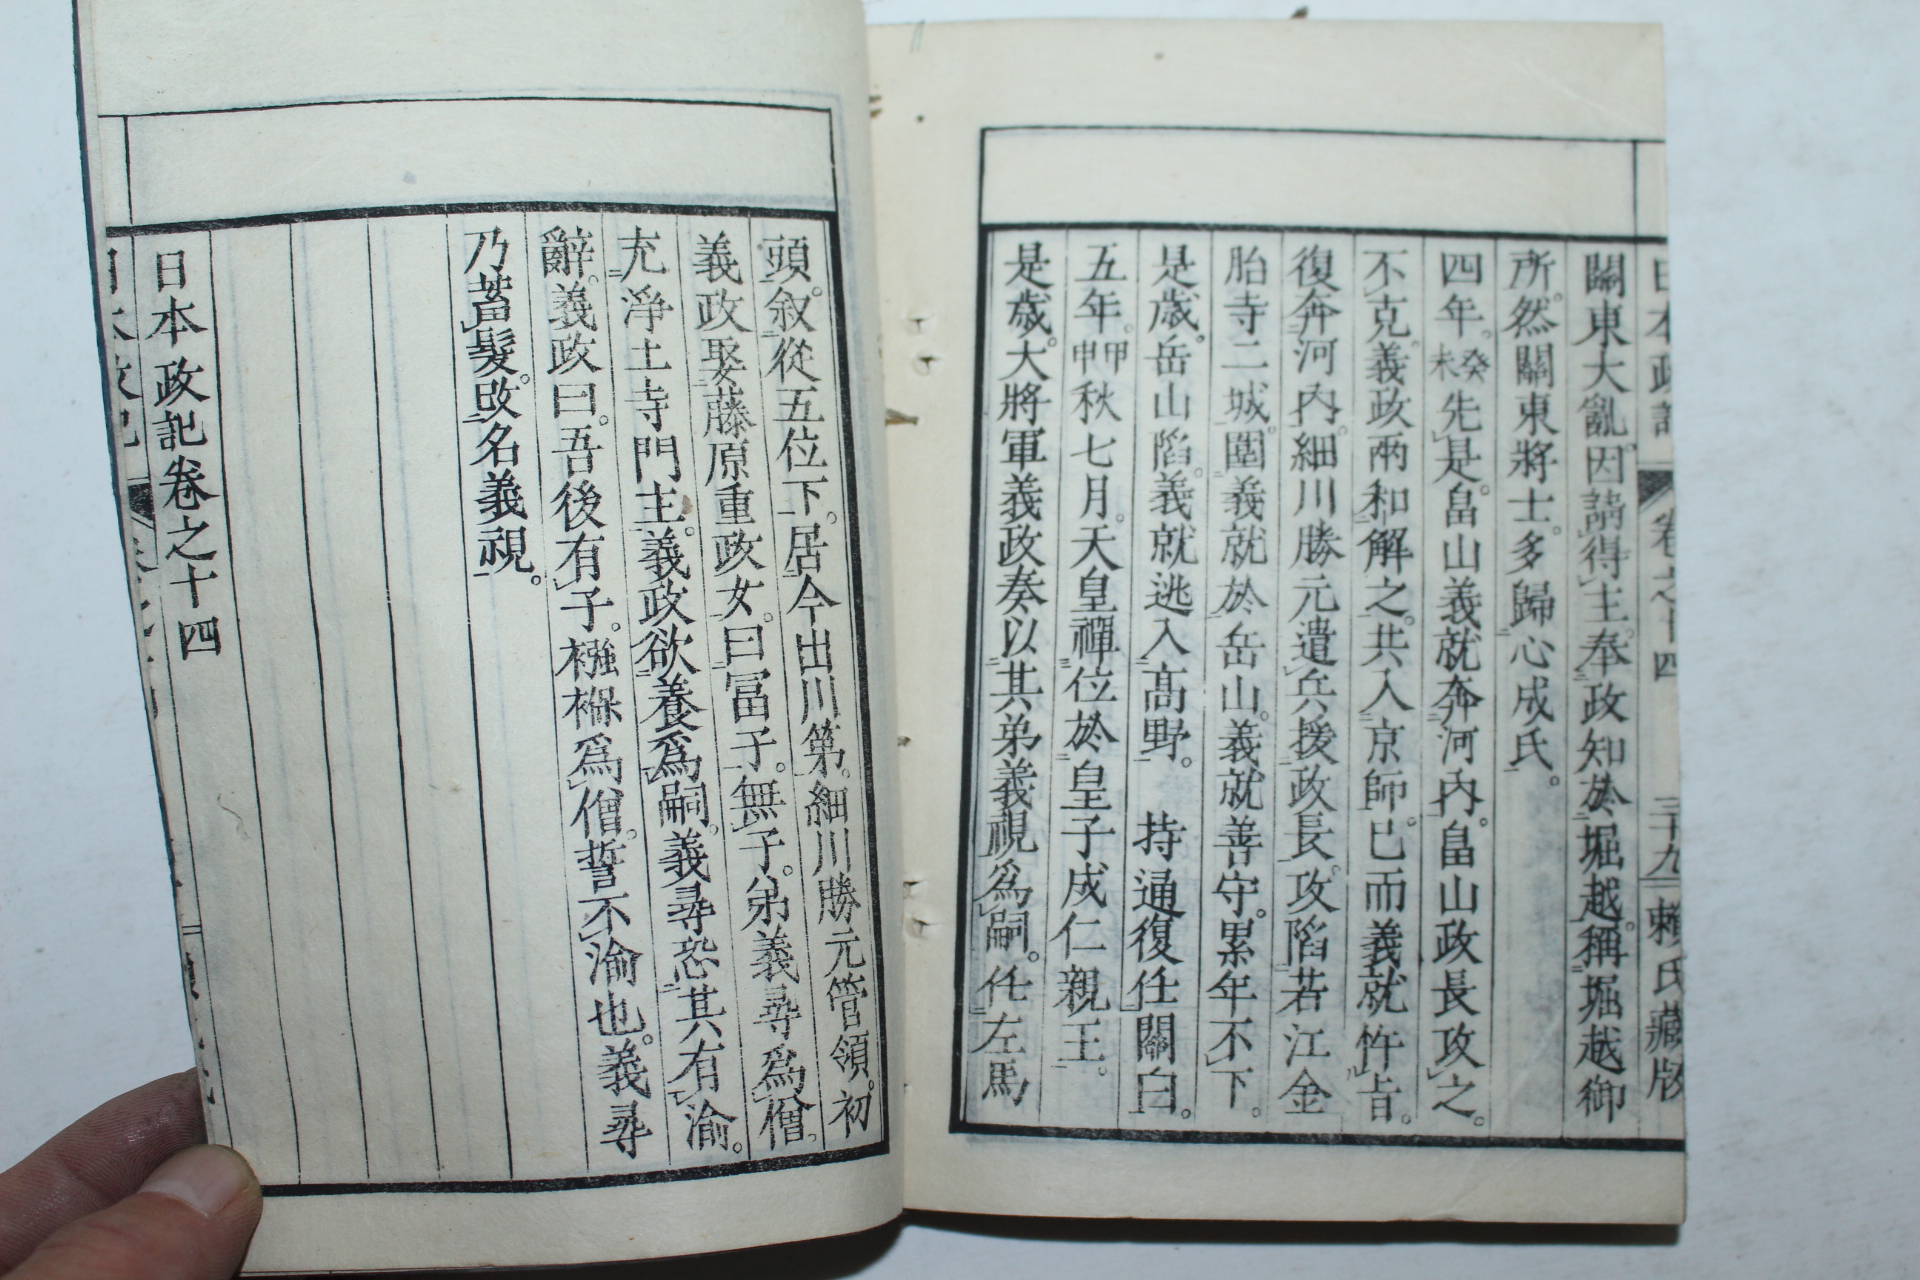 關東大亂。因請得主。奉政知於堀越。稱堀越御
所。然關東將士。多歸心成氏。
四年。癸未先是。畠山義就奔河內。畠山政長攻之。
不克。義政兩和解之。共入京師。已而義就忤旨。
復奔河內。細川勝元遣兵援政長。攻陷若江金
胎寺二城。圍義就於岳山。義就善守。累年不下。
是歲。岳山陷。義就逃入高野。 持通復任關白。
五年。甲申秋七月。天皇禪位於皇子成仁親王。
是歲。大將軍義政奏以其弟義視爲嗣。任左馬
日本政記
卷之十四
三十九
賴氏藏版
頭。敘從五位下。居今出川第。細川勝元管領。初
義政娶藤原重政女。曰富子。無子。弟義尋爲僧。
充淨土寺門主。義政欲養爲嗣。義尋恐其有渝。
辭。義政曰。吾後有子。襁褓爲僧。誓不渝也。義尋
乃蓄髮。改名義視。
日本政記卷之十四